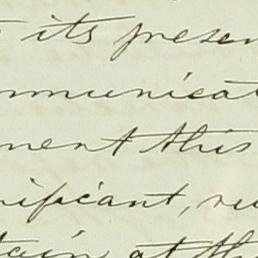 its presen
mmunicat
ment this
nificant,
tain at th